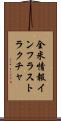 全米情報イ
ンフラスト
ラクチャ